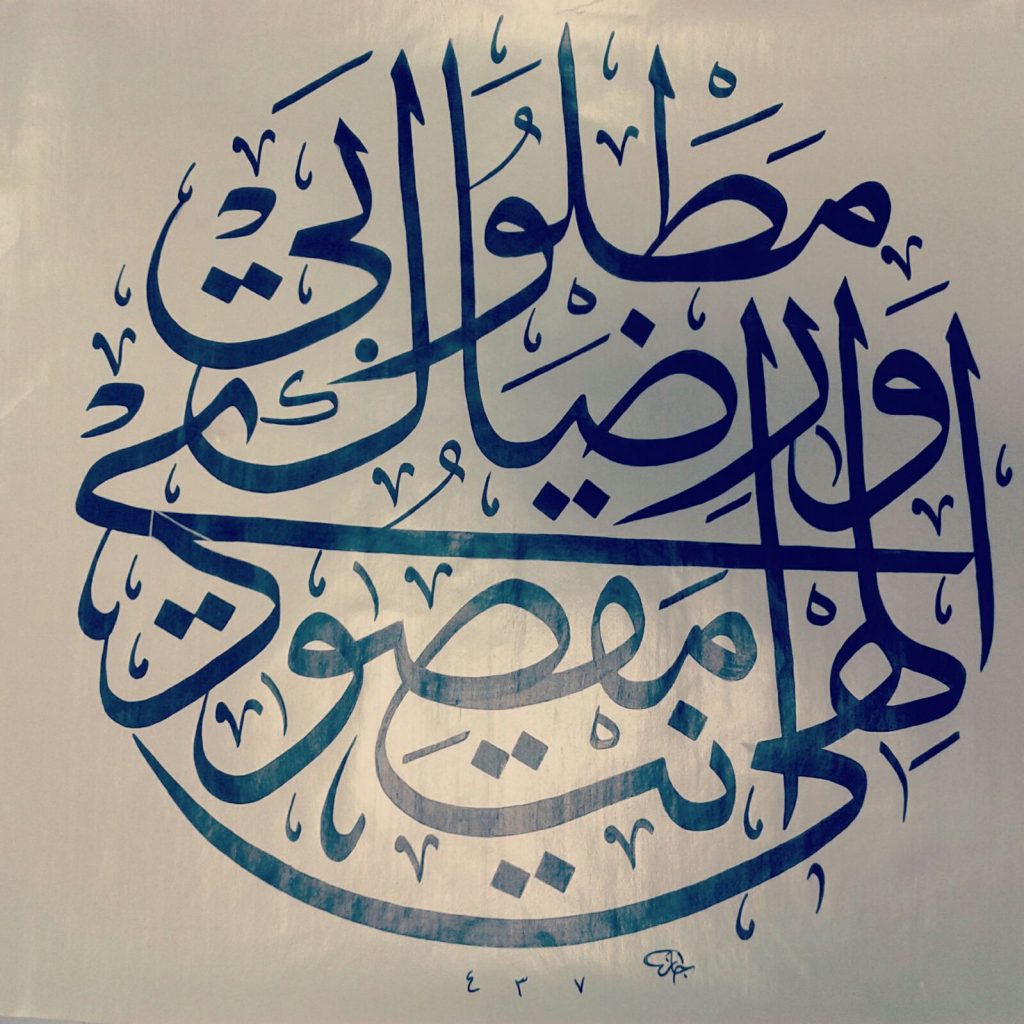 الهِي انْتَ مَقْصُودِي
وَرِضَاكَ مَطْلُوبِي
٤٣٧